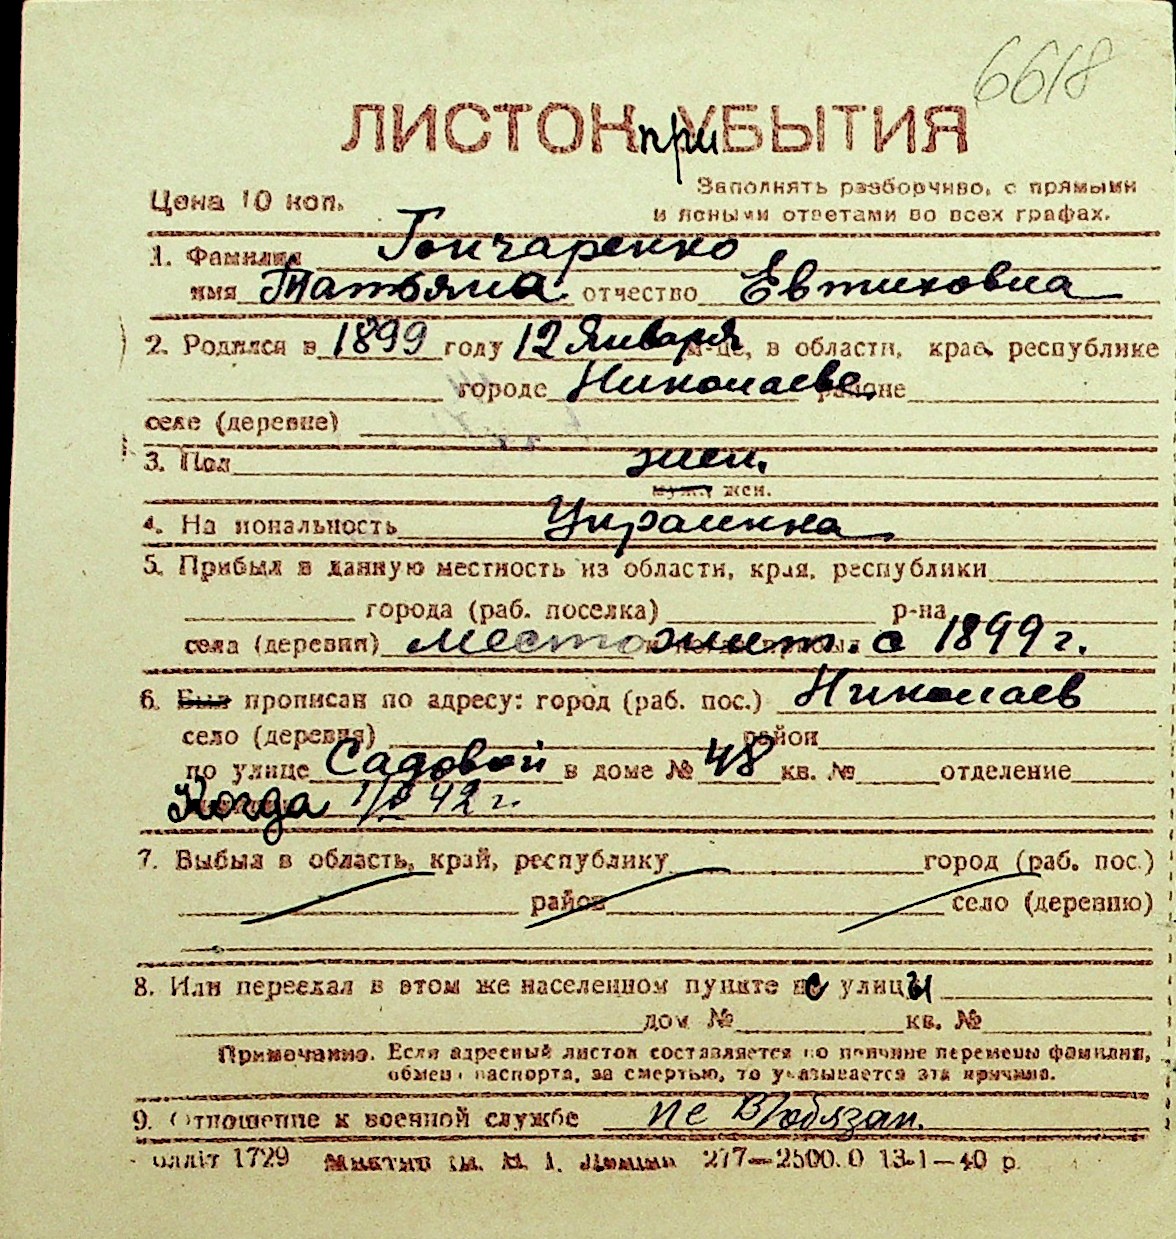 6618
ЛИСТОК приБЫТИЯ
Цена 10 коп.
Заполнять разборчиво, с прямыми
и ясными ответами во всех графах.
1. Фамилия Гончаренко
имя Татьяна отчество Евтиховна
2. Родился в 1899 году 12 Января м-це, в области, крае, республике
городе Николаеве районе
селе (деревне)
3. Пол жен.
муж. жен.
4. На иональность Украинка
5. Прибыл в данную местность из области, края, республики
города (раб. поселка) р-на
села (деревни) местожит. с 1899 г.
6. Был прописан по адресу: город (раб. пос.) Николаев
село (деревня) район
по улице Садовой в доме № 48 кв. № отделение
Когда 42 г.
7. Выбыл в область, край, республику город (раб. пос.)
район село (деревню)
8. Или переехал в этом же населенном пункте с улицы
дом № кв. №
Примечание. Если адресный листок составляется по причине перемены фамилии,
обмена паспорта, за смертью, то указывается эта причина.
9. Отношение к военной службе не в/обязан.
олліт 1729 277—2500.0 13-1—40 р.